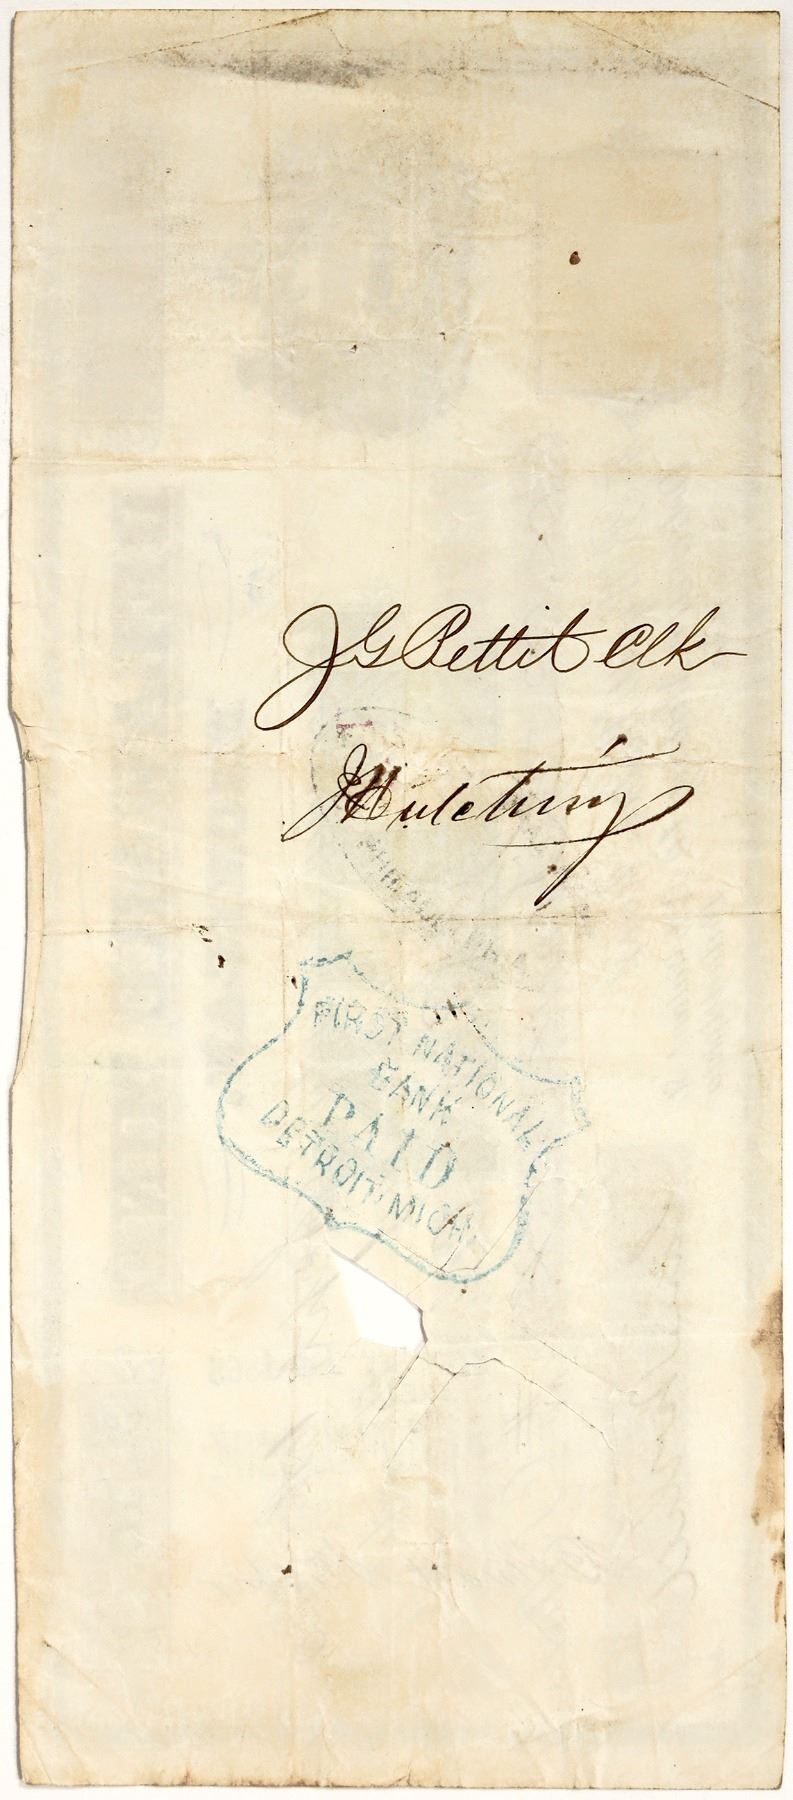 JG Pettit Clk
JHutchins
PHILADELPHIA
FIRST NATIONAL
BANK
PAID
DETROIT, MICH.